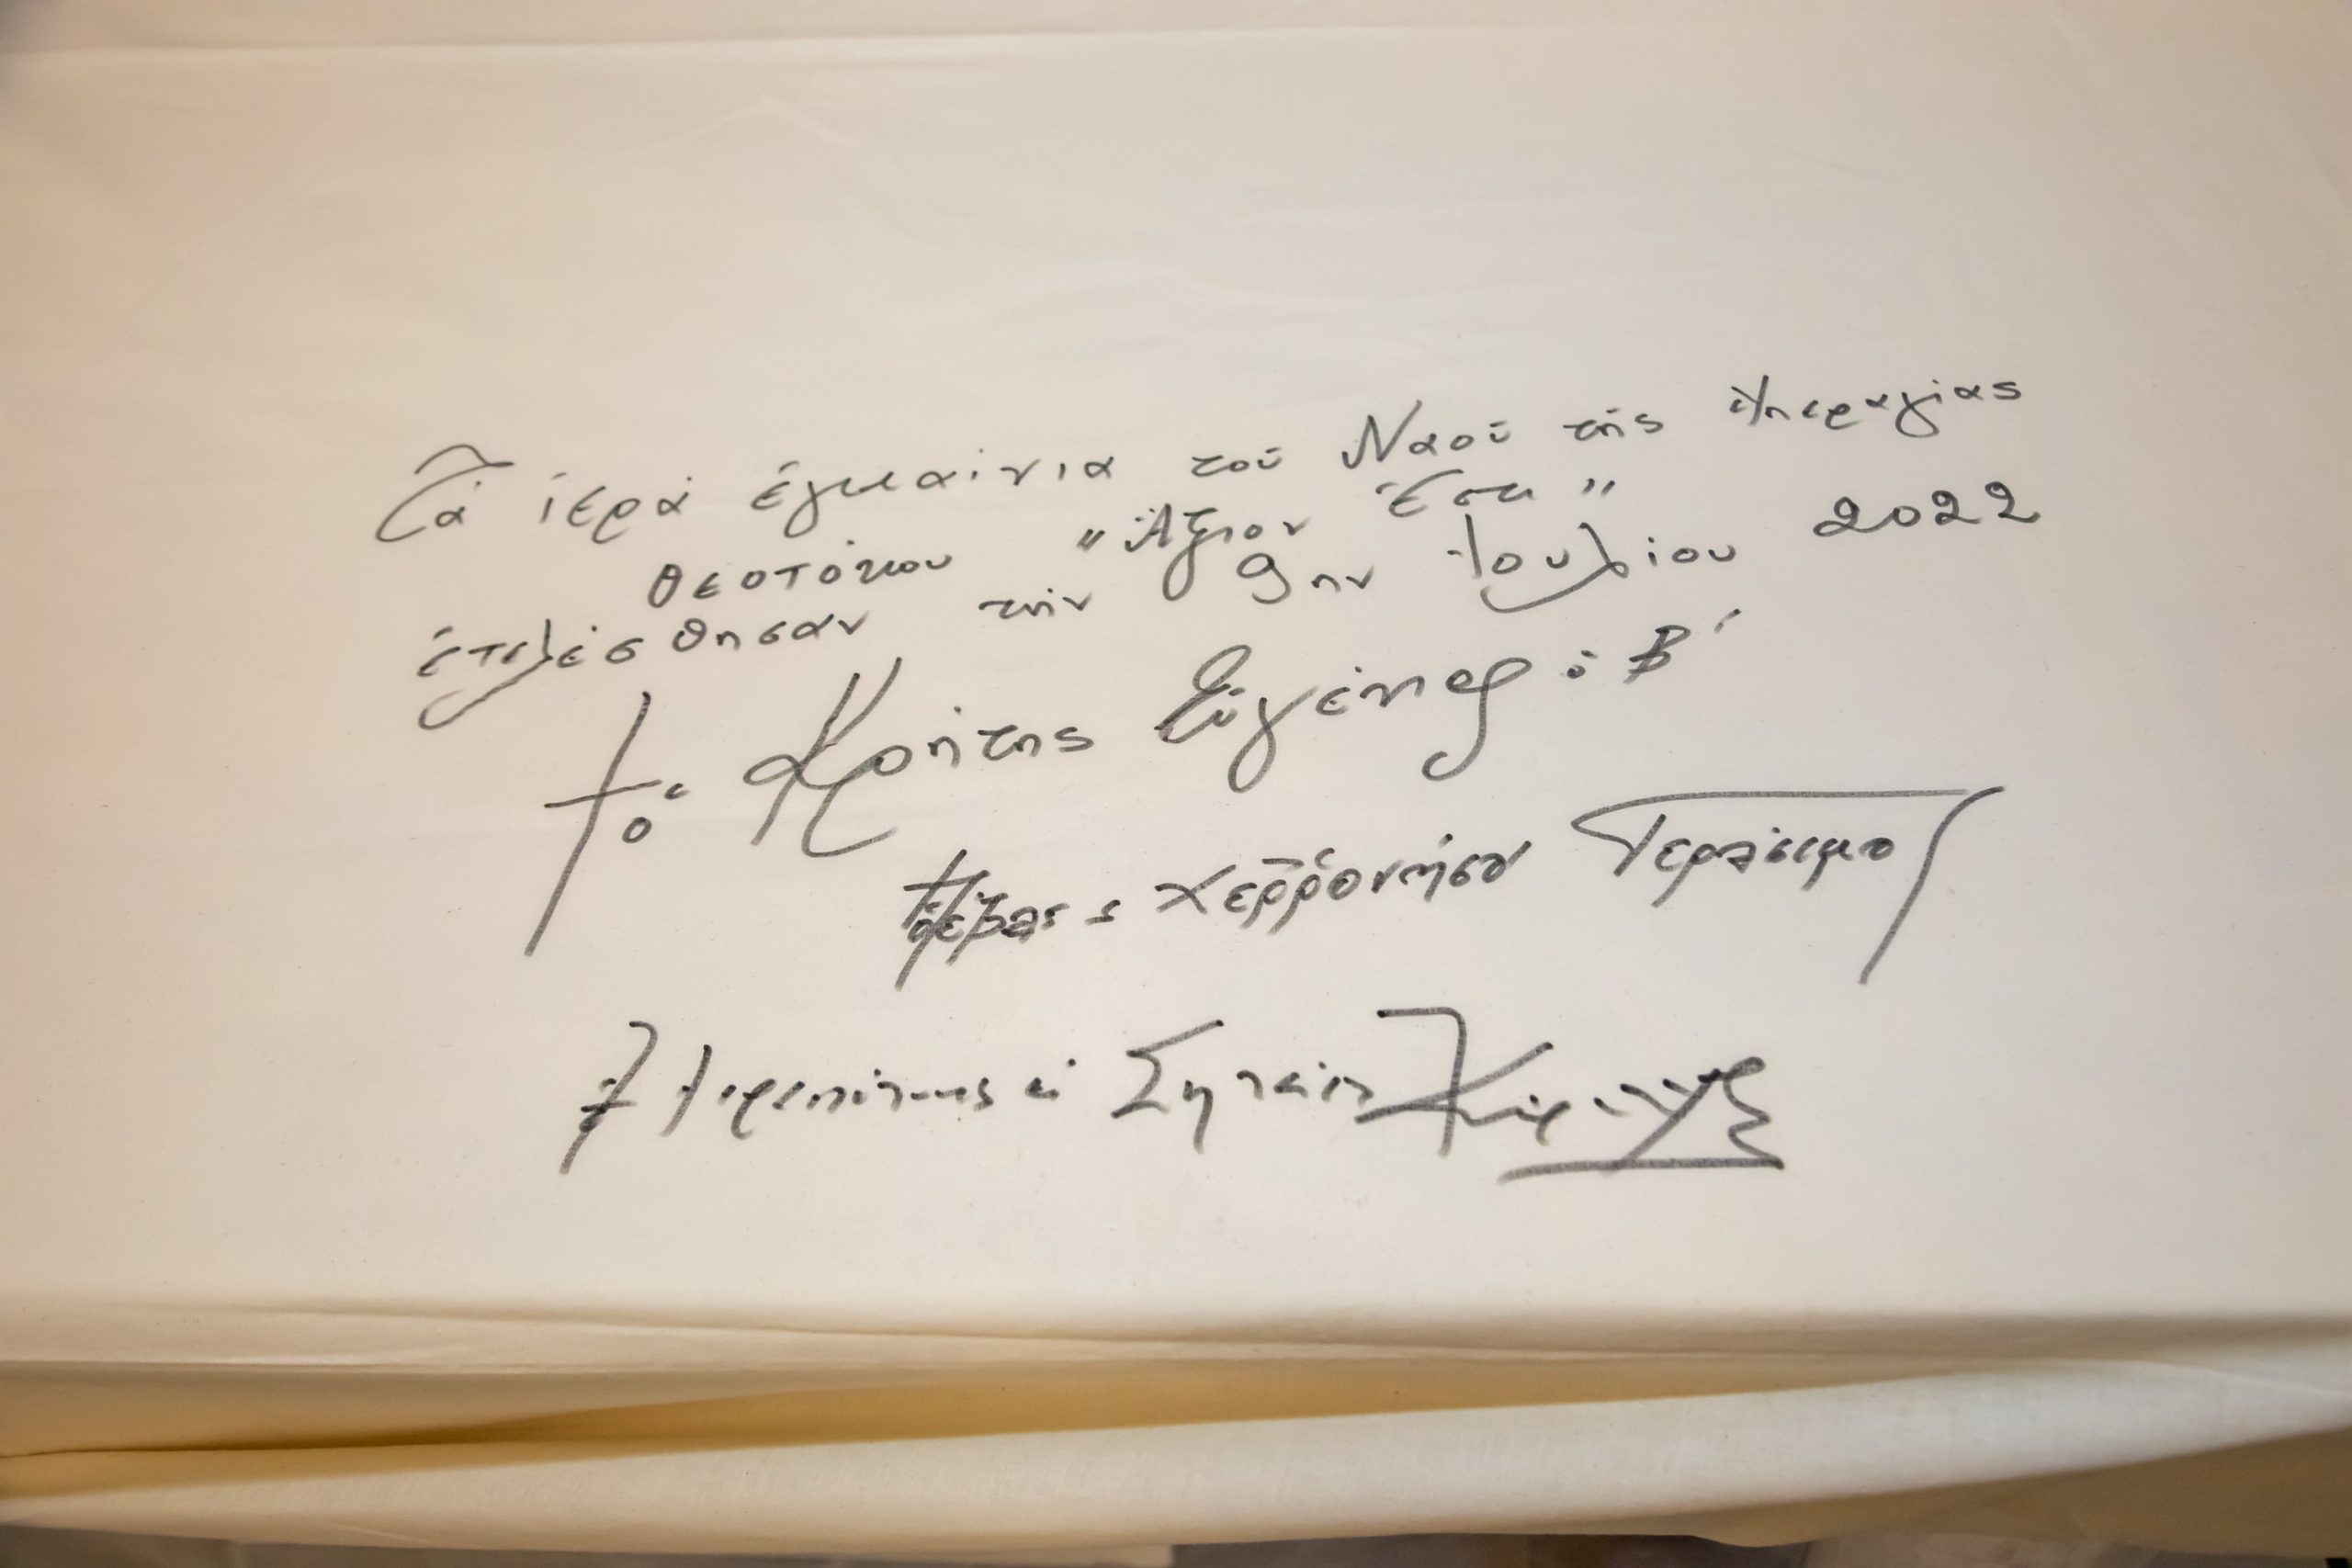 Τά ἱερά ἐγκαίνια τοῦ Ναοῦ τῆς Ὑπεραγίας
Θεοτόκου "Ἄξιον Ἐστι"
ἐτελέσθησαν τήν 9ην Ἰουλίου 2022
† ὁ Κρήτης Εὐγένιος ὁ Β΄
† ὁ Πέτρας & Χερρονήσου Γεράσιμος
† Ἱεραπύτνης & Σητείας Κύριλλος